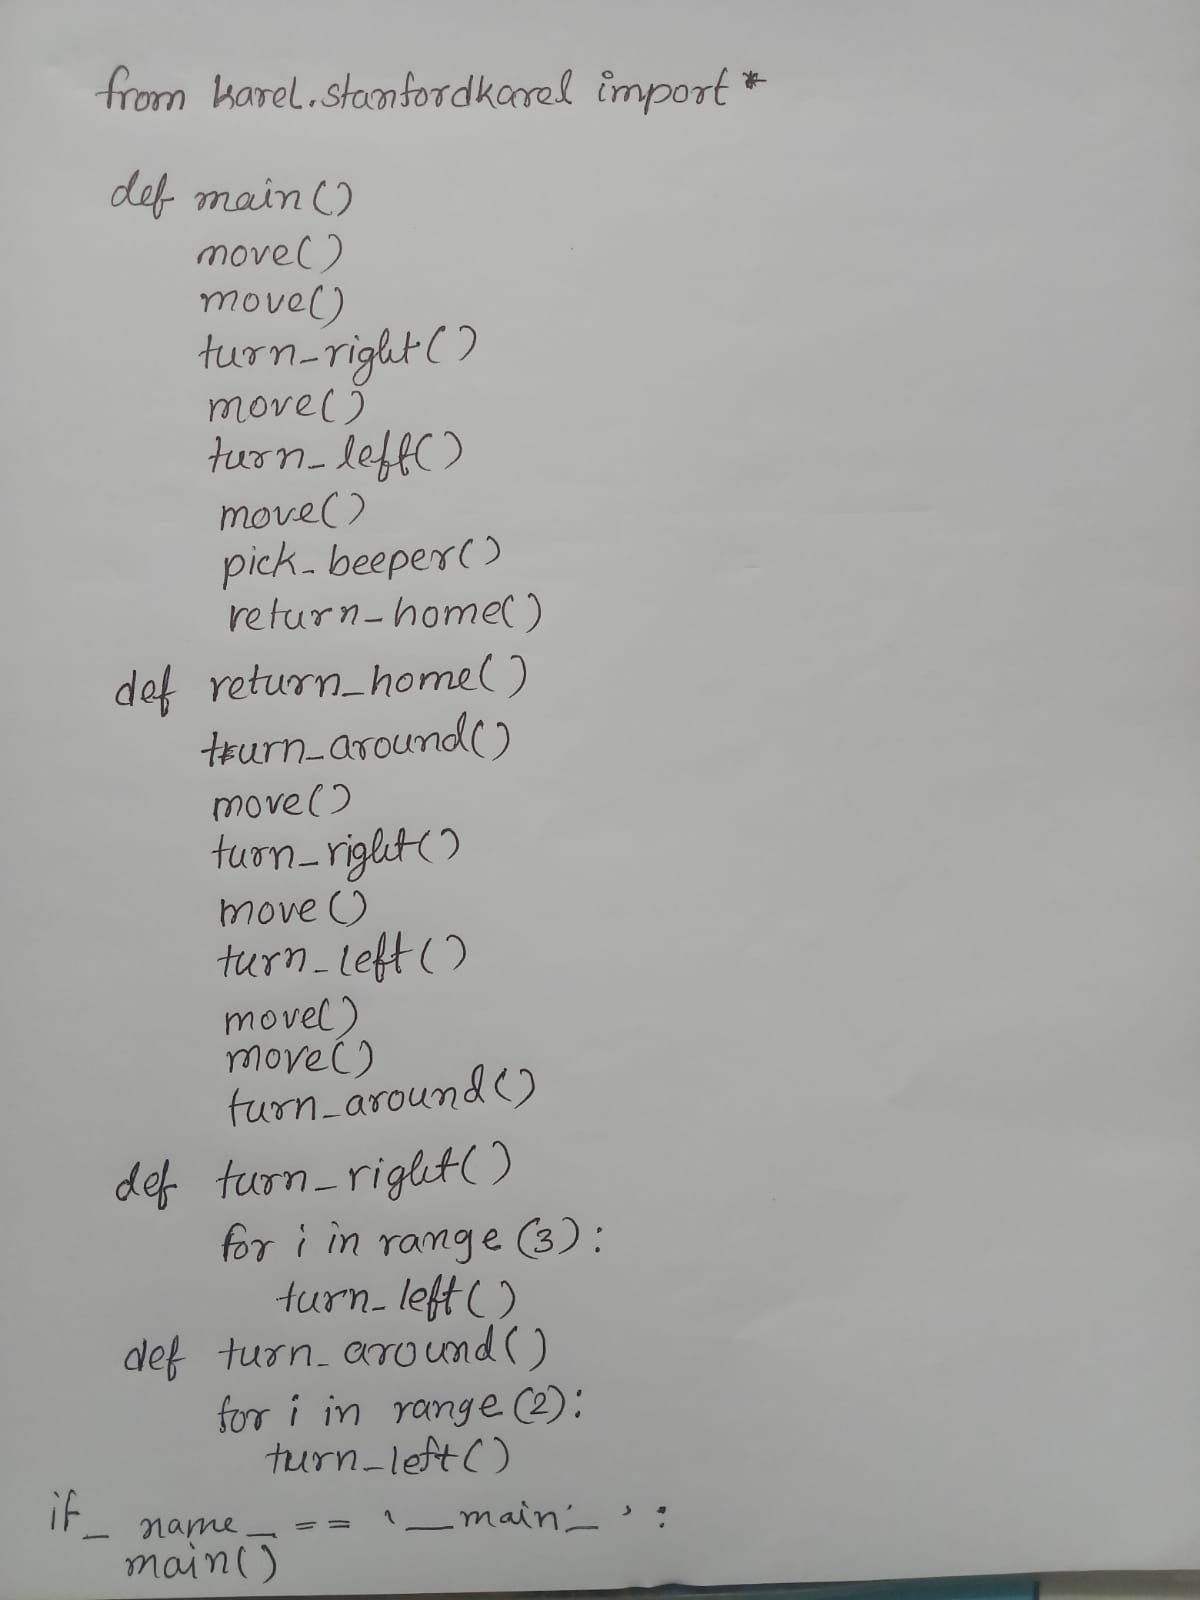 from karel.stanfordkarel import *
def main()
move()
move()
turn_right()
move()
turn_left()
move()
pick_beeper()
return_home()
def return_home()
turn_around()
move()
turn_right()
move()
turn_left()
move()
move()
turn_around()
def turn_right()
for i in range (3):
turn_left()
def turn_around()
for i in range (2):
turn_left()
if _ name _ == '_main_':
main()